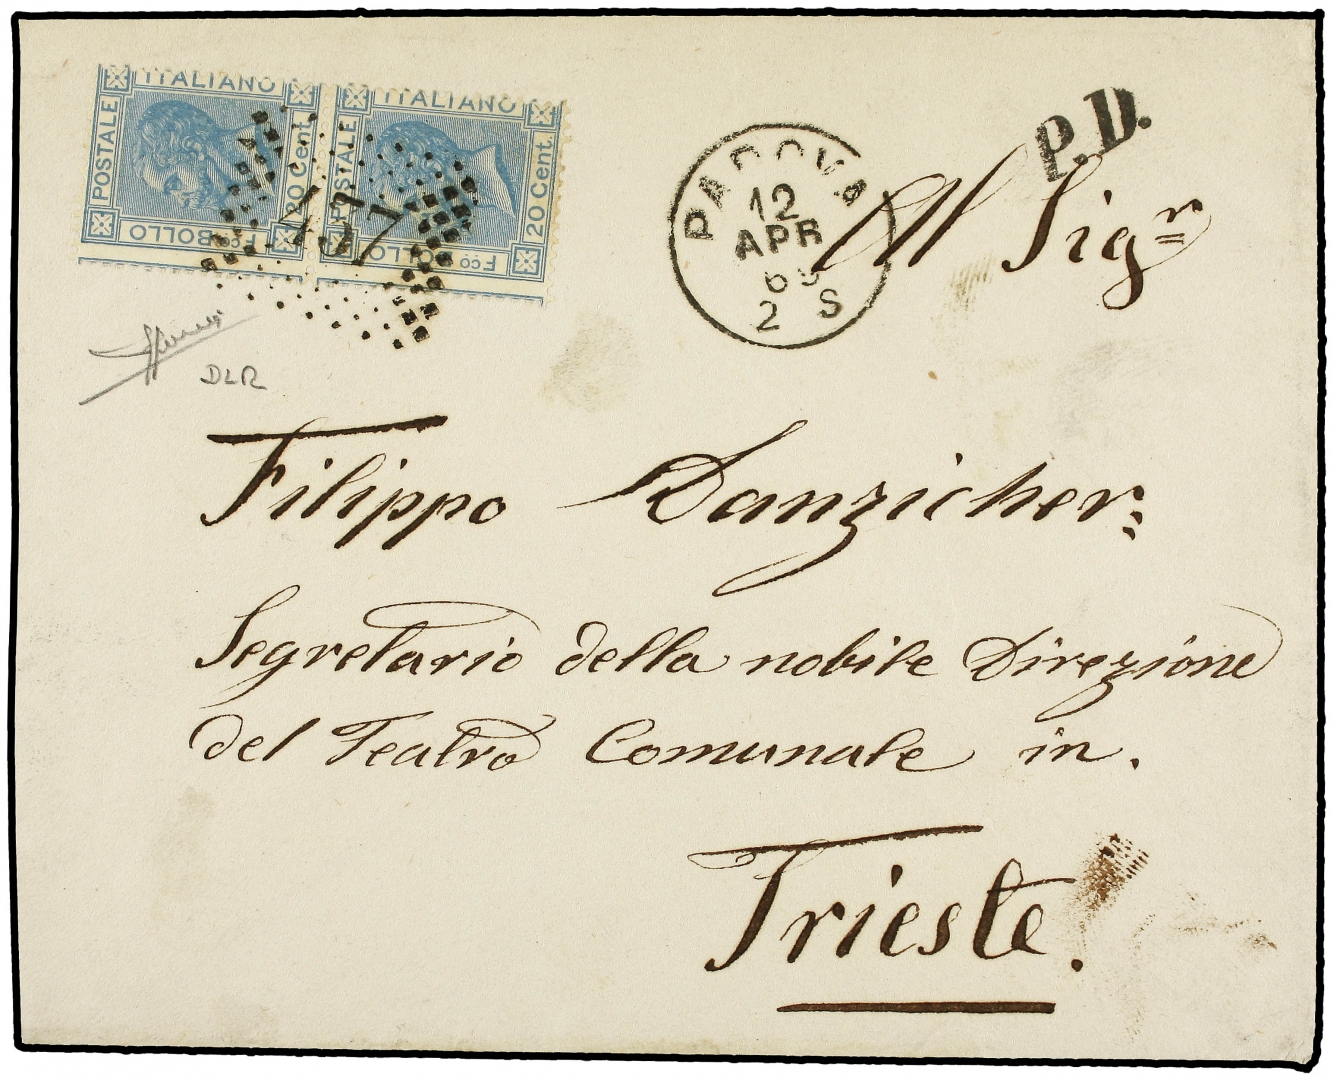 ITALIANO ITALIANO
POSTALE 20 Cent. POSTALE 20 Cent.
Fco BOLLO Fco BOLLO
PADOVA
12
APR
69
2 S
P.D.
All Sigr
DLR
Filippo Danzicher
Segretario della nobile Direzione
del Teatro Comunale in.
Trieste.